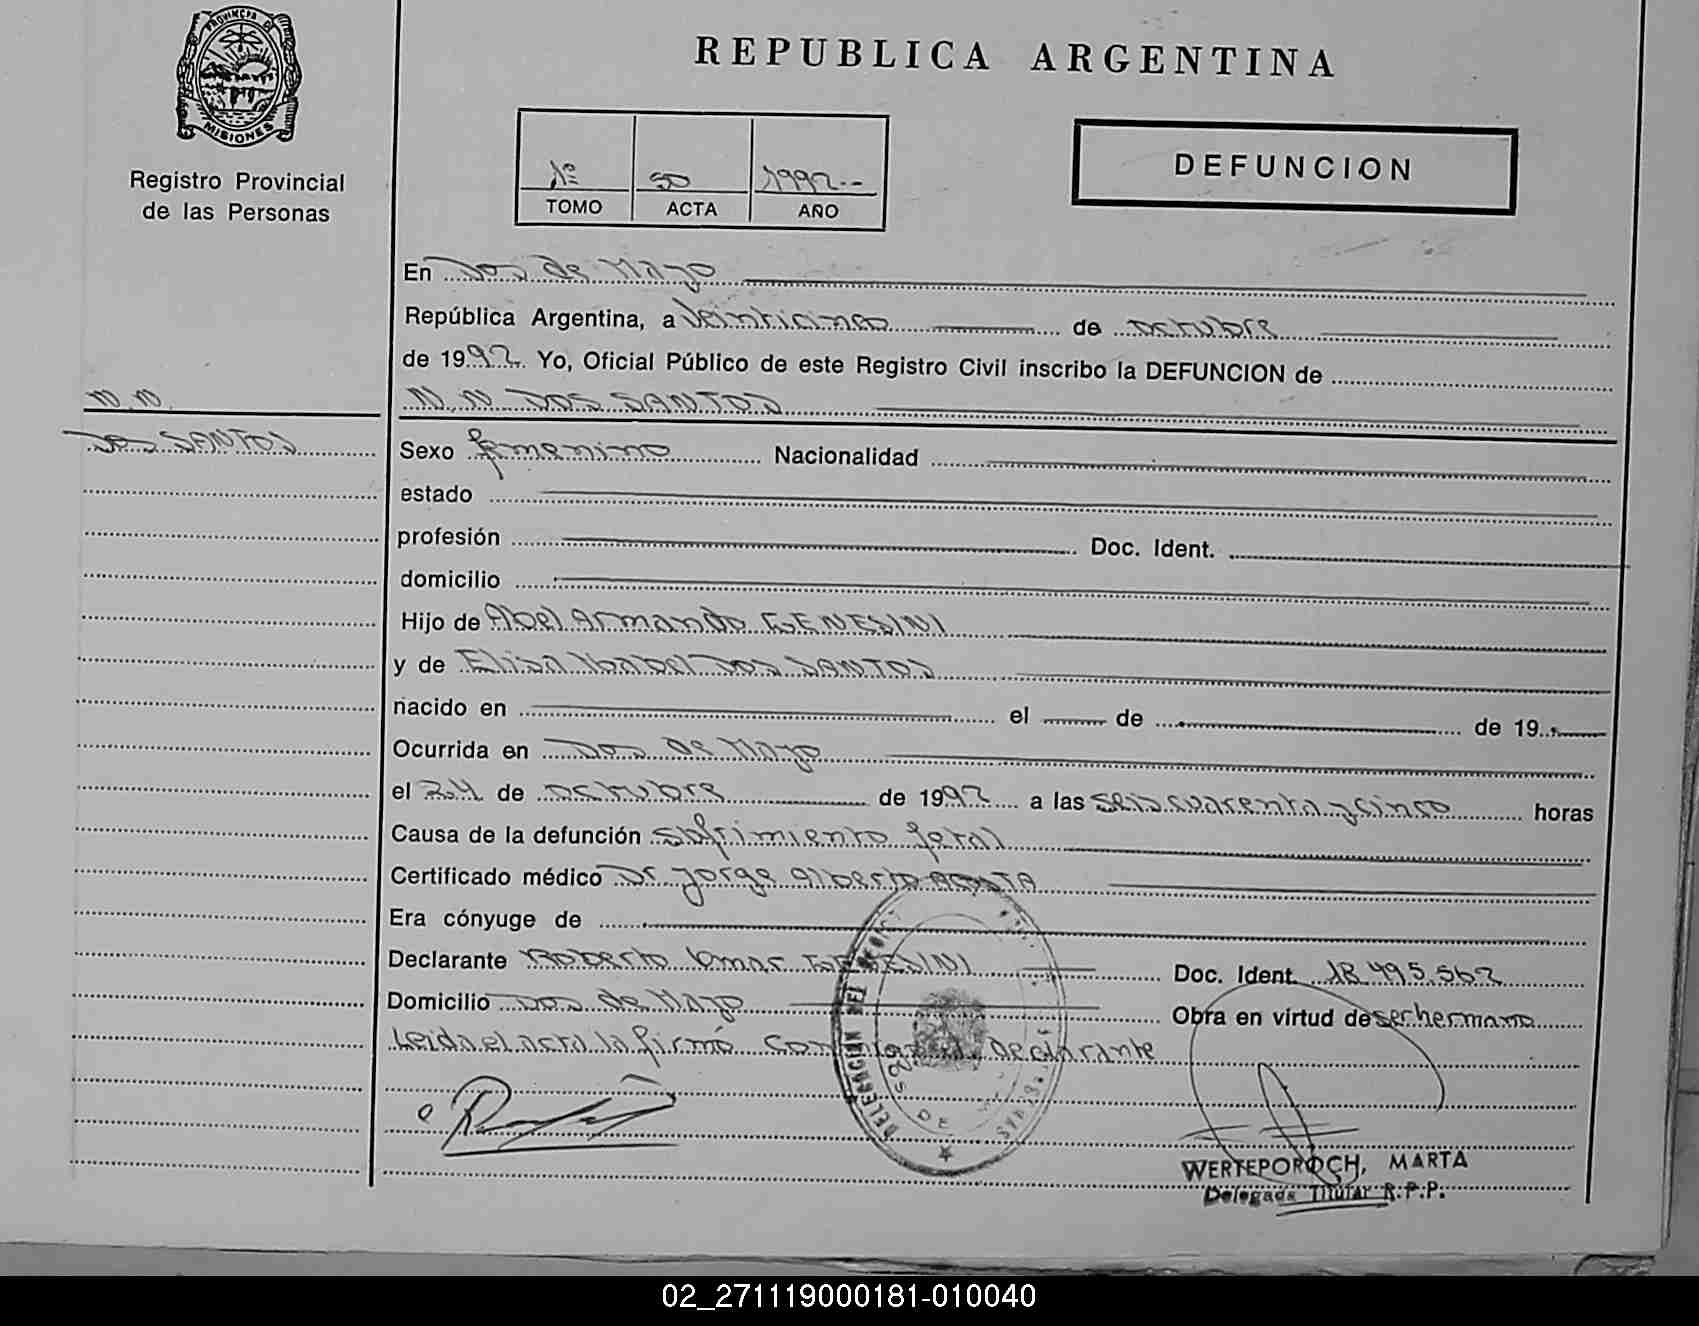 PROVINCIA DE
MISIONES
Registro Provincial
de las Personas
REPUBLICA ARGENTINA
DEFUNCION
1º 50 1992
TOMO ACTA AÑO
En Dos de Mayo
República Argentina, a Veinticinco de octubre
de 1992 Yo, Oficial Público de este Registro Civil inscribo la DEFUNCION de
N.N. DOS SANTOS
N.N.
DOS SANTOS
Sexo femenino Nacionalidad
estado
profesión Doc. Ident.
domicilio
Hijo de Abel Armando GENESINI
y de Elisa Isabel DOS SANTOS
nacido en el de de 19
Ocurrida en Dos de Mayo
el 24 de octubre de 1992 a las seis cuarenta y cinco horas
Causa de la defunción sufrimiento fetal
Certificado médico Dr Jorge Alberto ACOSTA
Era cónyuge de
Declarante Roberto Omar GENESINI Doc. Ident. 18.495.562
Domicilio Dos de Mayo Obra en virtud de ser hermano
Leida el acta la firmó conmigo el declarante
DELEGACION DEL
WERTEPOROCH, MARTA
Delegada Titular R.P.P.
02_271119000181-010040